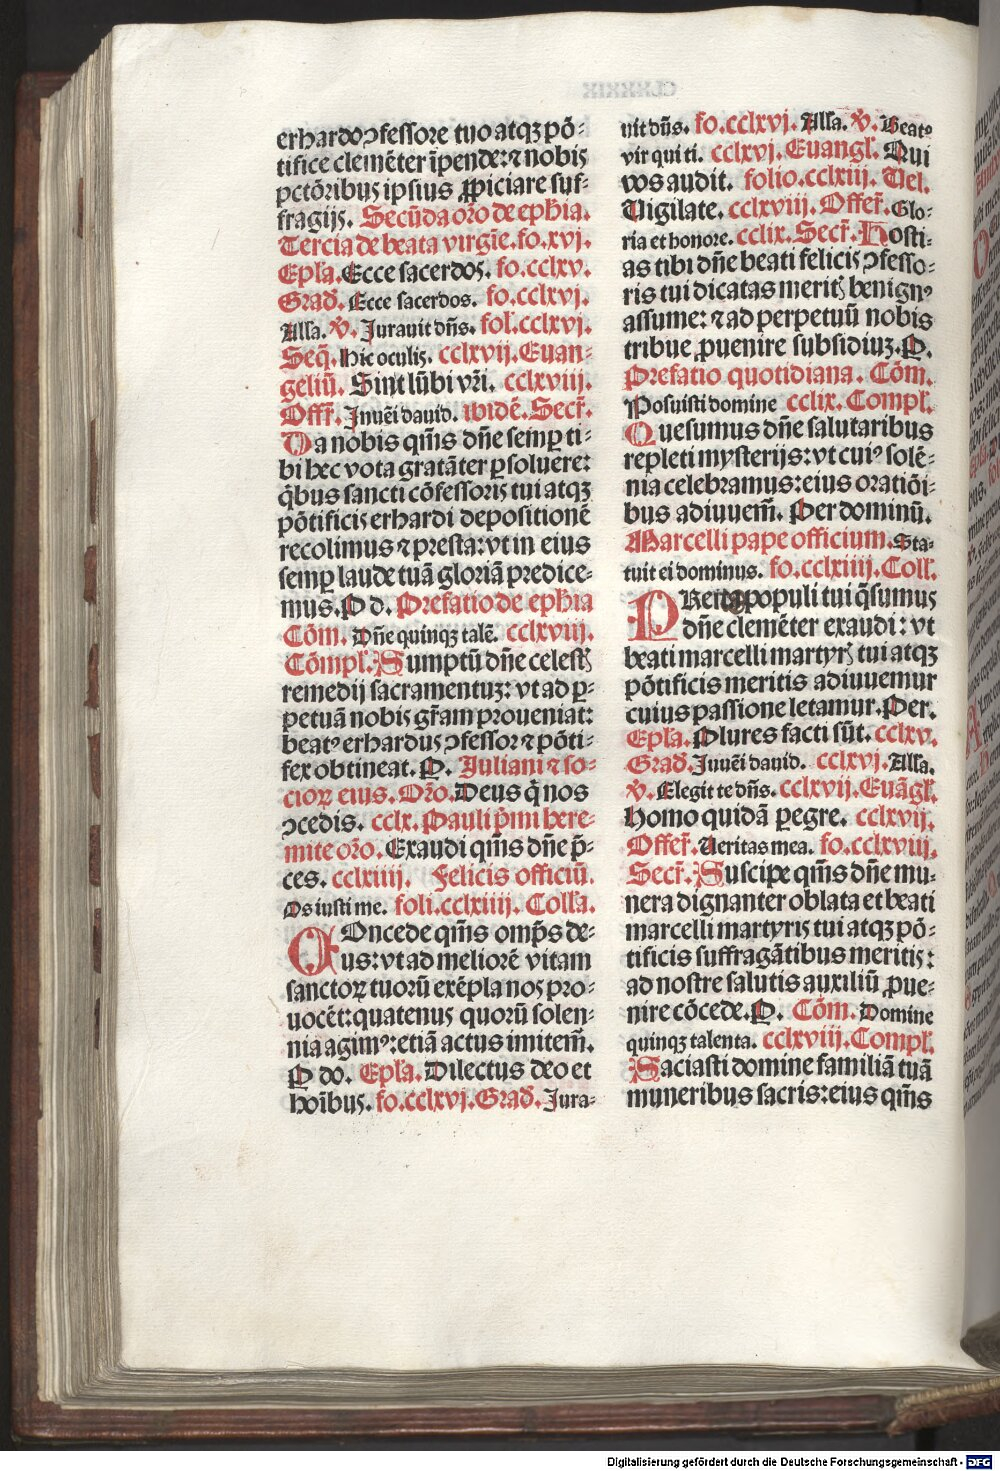 erhardo ↄfessore tuo atqꝫ pō-
tifice clemēter īpende: ⁊ nobis
pctōribus ipsius ꝓpiciare suf-
fragijs. Secūda oro de ephia.
Tercia de beata virgīe. fo. xvj.
Epla. Ecce sacerdos. fo. cclxv.
Grad. Ecce sacerdos. fo. cclxvj.
Alla. v̄. Jurauit dn̄s. fol. cclxvj.
Seq̄. Hic oculis. cclxvij. Euan-
geliū. Sint lūbi vr̄i. cclxviij.
Offr̄. Jnuēi dauid. ibidē. Secr̄.
Da nobis qm̄s dn̄e semꝑ ti-
bi hec vota gratāter ꝑsoluere:
q̄bus sancti cōfessoris tui atqꝫ
pōtificis erhardi depositionē
recolimus ⁊ presta: vt in eius
semꝑ laude tuā gloriā predice-
mus. P d. Prefatio de ephia
Cōm. Dn̄e quinqꝫ talē. cclxviij.
Cōmpl. Sumptū dn̄e celestꝭ
remedij sacramentuꝫ: vt ad ꝑ-
petuā nobis gr̄am proueniat:
beatꝰ erhardus ↄfessor ⁊ pōti-
fex obtineat. P. Juliani ⁊ so-
cioꝝ eius. Or̄o. Deus q̄ nos
ↄcedis. cclx. Pauli p̄mi here-
mite oro. Exaudi qm̄s dn̄e p̄-
ces. cclxiiij. Felicis officiū.
Os iusti me. foli. cclxiiij. Colla.
COncede qm̄s omp̄s de-
us: vt ad meliorē vitam
sanctoꝝ tuorū exēpla nos pro-
uocēt: quatenus quorū solen-
nia agimꝰ: etiā actus imitem̄.
P do. Epla. Dilectus deo et
hoībus. fo. cclxvj. Grad. Jura-
uit dn̄s. fo. cclxvj. Alla. v̄. Beatꝰ
vir qui ti. cclxvj. Euangl. Qui
vos audit. folio. cclxiij. Vel.
Vigilate. cclxviij. Offer̄. Glo-
ria et honore. cclix. Secr̄. Hosti-
as tibi dn̄e beati felicis ↄfesso-
ris tui dicatas meritꝭ benignꝰ
assume: ⁊ ad perpetuū nobis
tribue ꝓuenire subsidiuꝫ. P.
Prefatio quotidiana. Cōm.
Posuisti domine cclix. Compl.
Quesumus dn̄e salutaribus
repleti mysterijs: vt cuiꝰ solē-
nia celebramus: eius oratiōi-
bus adiuuem̄. Per dominū.
Marcelli pape officium. Sta-
tuit ei dominus. fo. cclxiiij. Coll.
PReces populi tui q̄sumus
dn̄e clemēter exaudi: vt
beati marcelli martyrꝭ tui atqꝫ
pōtificis meritis adiuuemur
cuius passione letamur. Per.
Epla. Plures facti sūt. cclxv.
Grad. Jnuēi dauid. cclxvj. Alla.
v̄. Elegit te dn̄s. cclxvij. Euāgl.
Homo quidā ꝑegre. cclxvij.
Offer̄. Veritas mea. fo. cclxviij.
Secr̄. Suscipe qm̄s dn̄e mu-
nera dignanter oblata et beati
marcelli martyris tui atqꝫ pō-
tificis suffragātibus meritis:
ad nostre salutis auxiliū ꝓue-
nire cōcede. P. Cōm. Domine
quinqꝫ talenta. cclxviij. Compl.
Saciasti domine familiā tuā
muneribus sacris: eius qm̄s
Digitalisierung gefördert durch die Deutsche Forschungsgemeinschaft - DFG